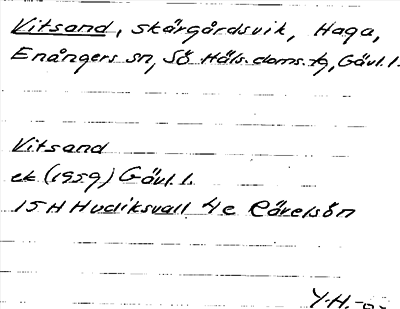 Vitsand, skärgårdsvik, Haga,
Enångers sn, Sö Häls. doms.-tg, Gävl. l.
Vitsand
ek (1959) Gävl. l.
15H Hudiksvall 4e Rävelsön
Y.H.-n